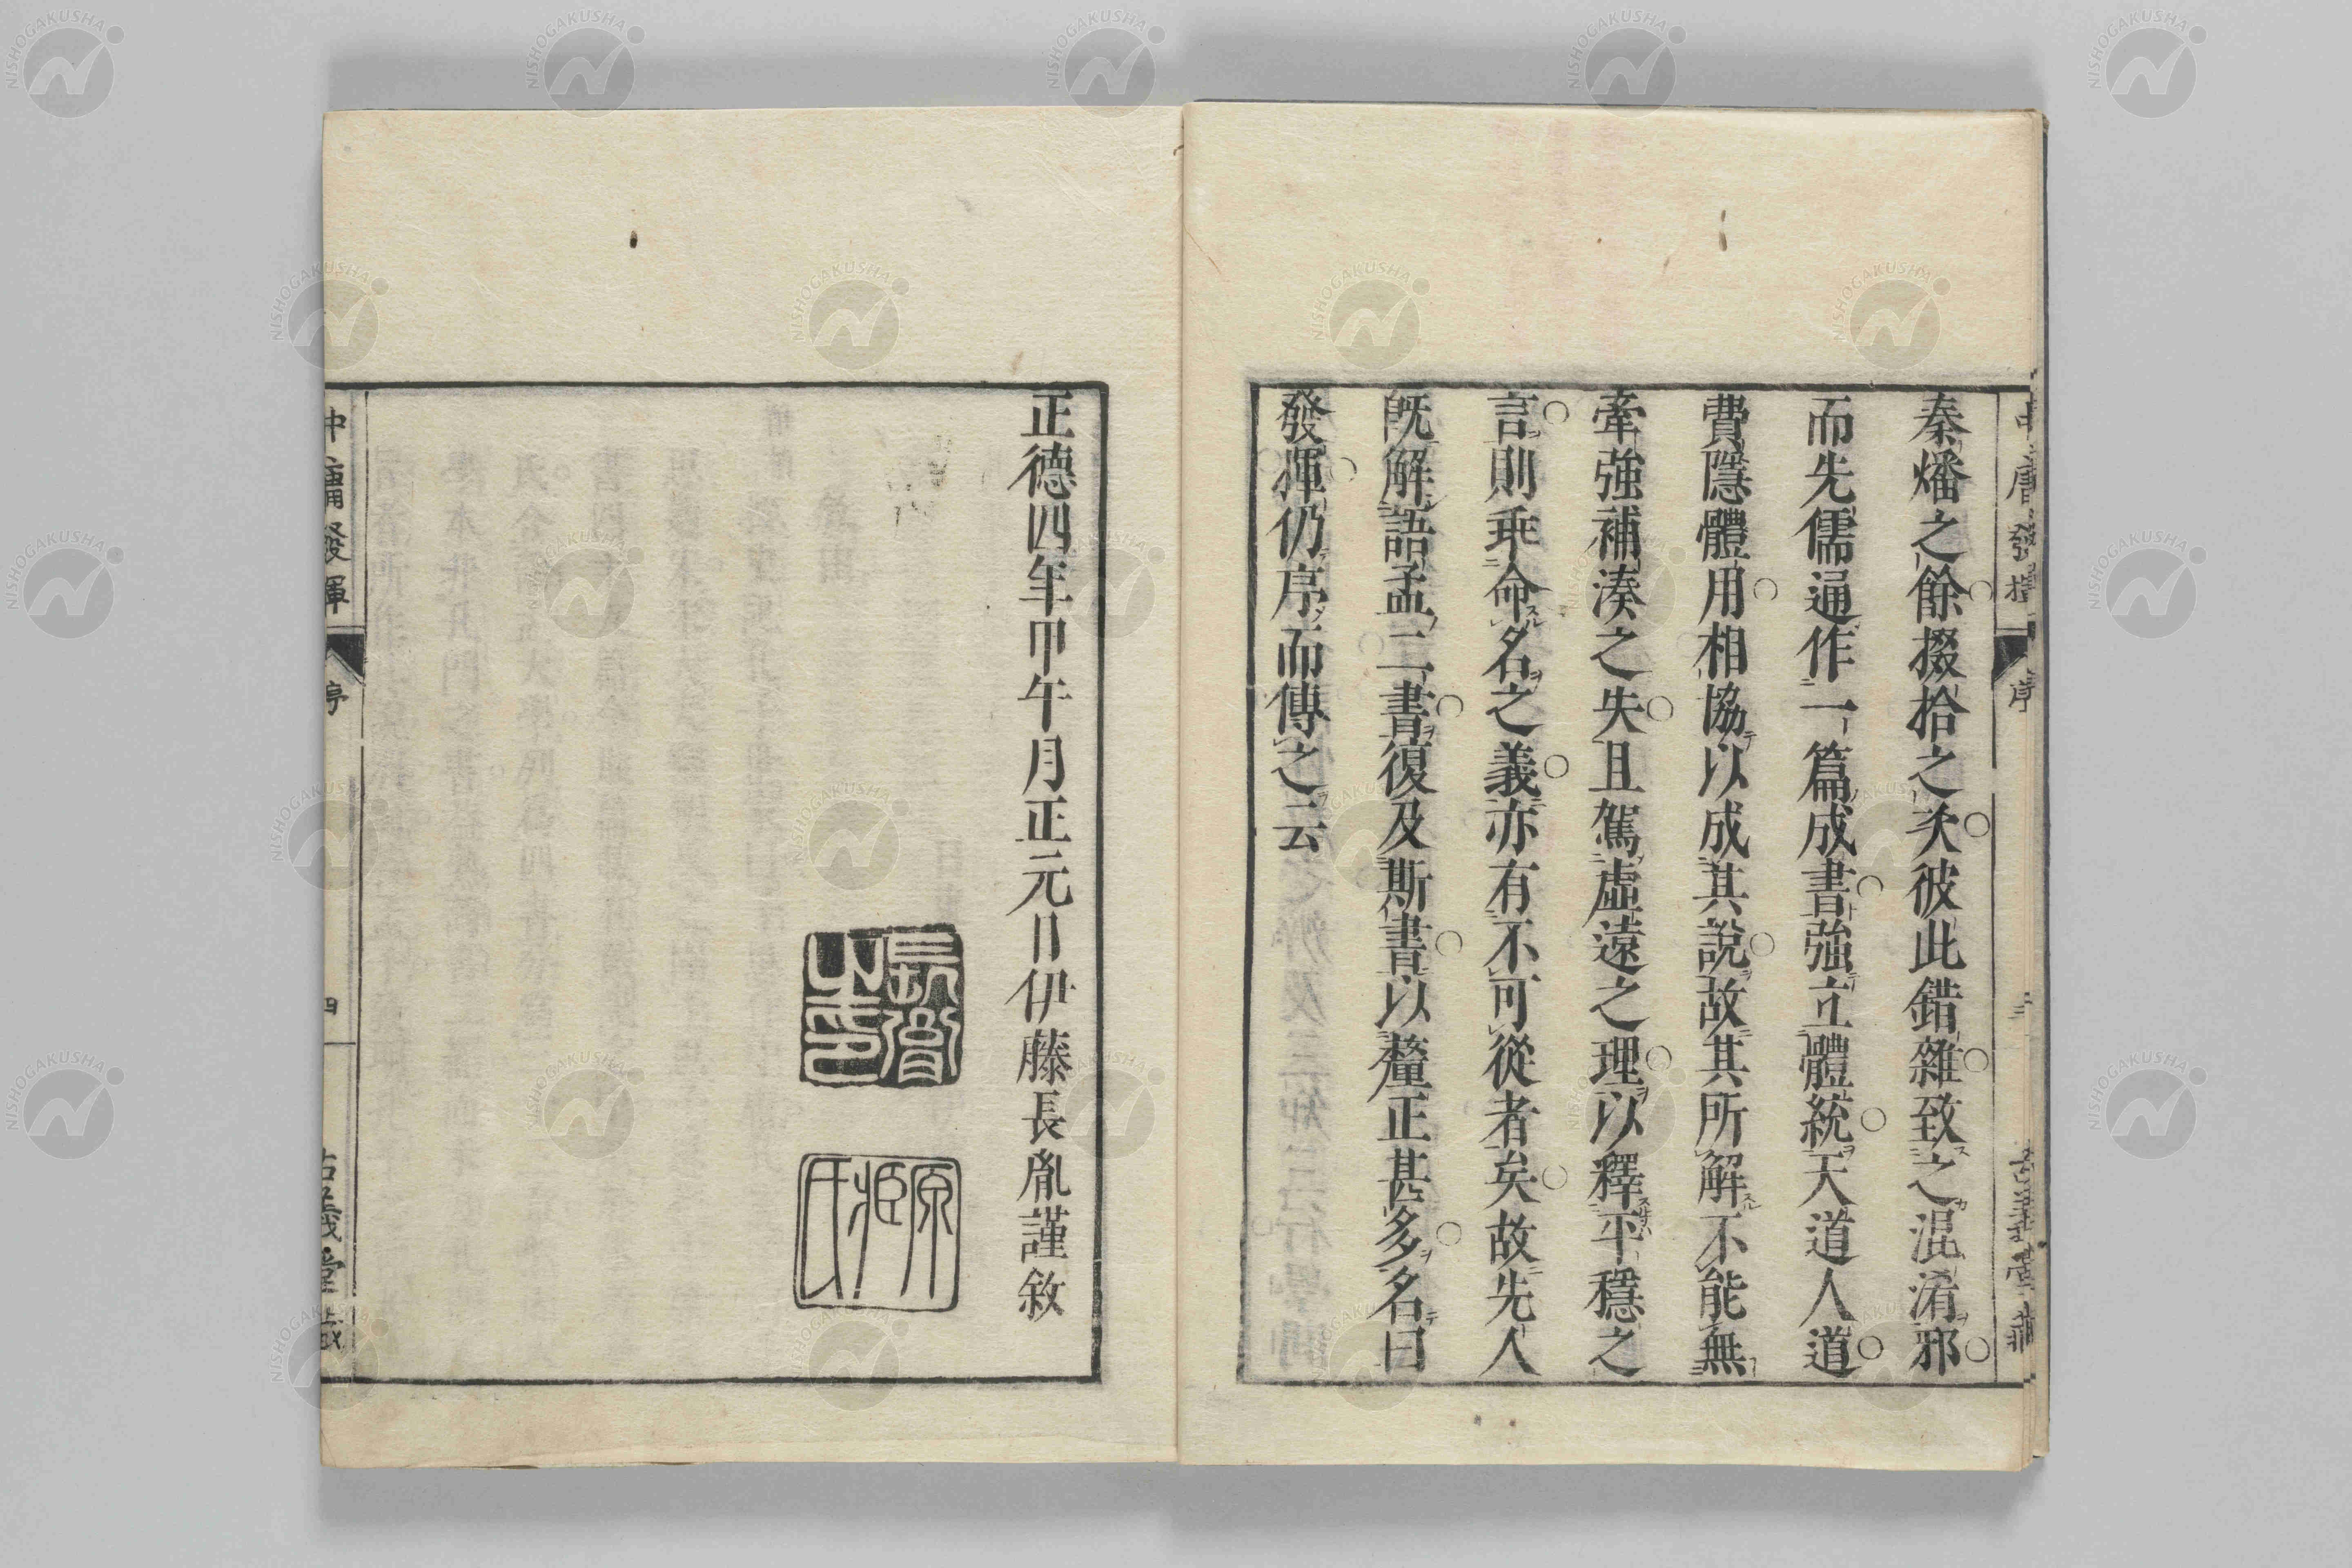 中庸發揮 序 三 古義堂藏
秦燔之餘掇拾之文彼此錯雜致之混淆邪
而先儒通作一篇成書強立體統天道人道
費隱體用相協以成其說故其所解不能無
牽強補湊之失且駕虛遠之理以釋平穩之
言則乖命名之義亦有不可從者矣故先人
既解語孟二書復及斯書以釐正甚多名曰
發揮仍序而傳之云
正德四年甲午月正元日伊藤長胤謹敘
長胤之印
原臧氏
中庸發揮 序 四 古義堂藏
NISHOGAKUSHA